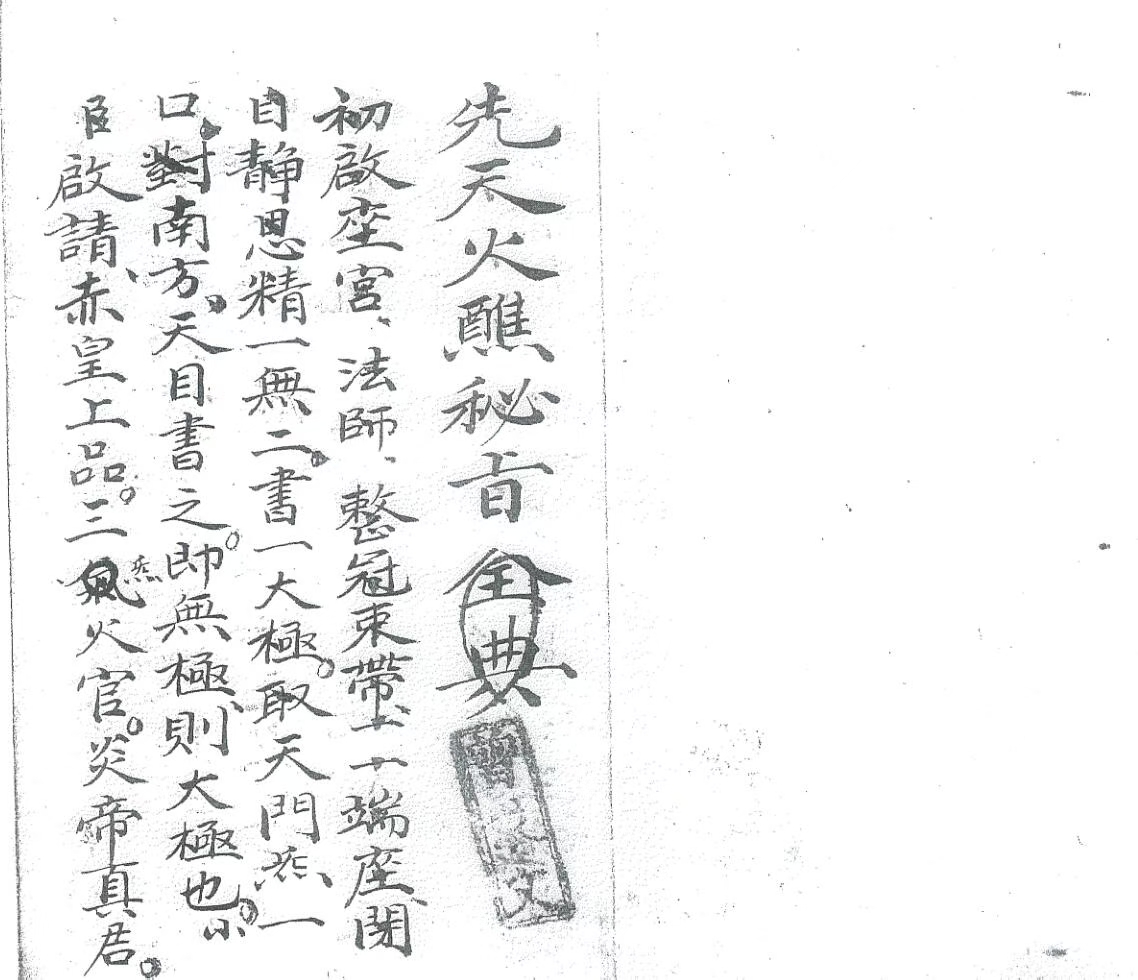 先天火醮秘旨全典
初啟座宮、法師、整冠束帶上十端座閉
目靜思精一無二書一大極。取天門炁一
口對南方。天目書之。即無極則大極也。小
臣啟請、赤皇上品。三炁火官。炎帝真君。